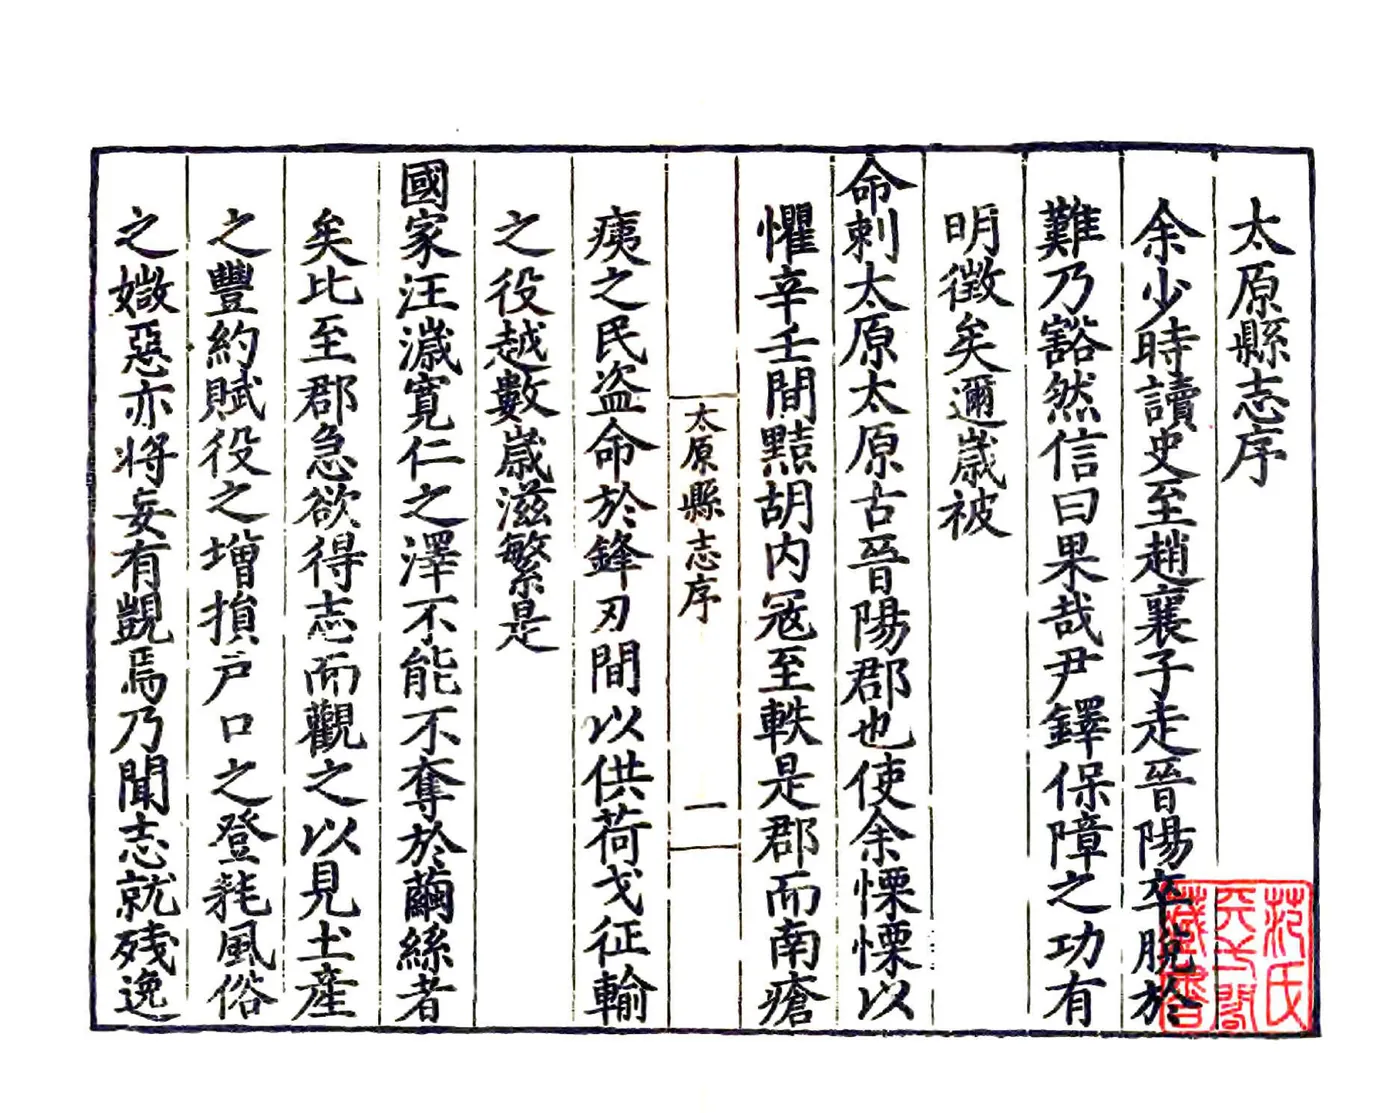 太原縣志序
余少時讀史至趙襄子走晉陽卒脫於
難乃豁然信曰果哉尹鐸保障之功有
明徵矣邇嵗被
命刺太原太原古晉陽郡也使余慄慄以
懼辛壬間黠胡内冦至軼是郡而南瘡
太原縣志序
一
痍之民盗命於鋒刃間以供荷戈征輸
之役越數嵗滋繁是
國家汪濊寛仁之澤不能不奪於繭絲者
矣比至郡急欲得志而觀之以見土產
之豐約賦役之增損户口之登耗風俗
之媺惡亦將妄有覬焉乃聞志就残逸
范氏
天一閣
藏書